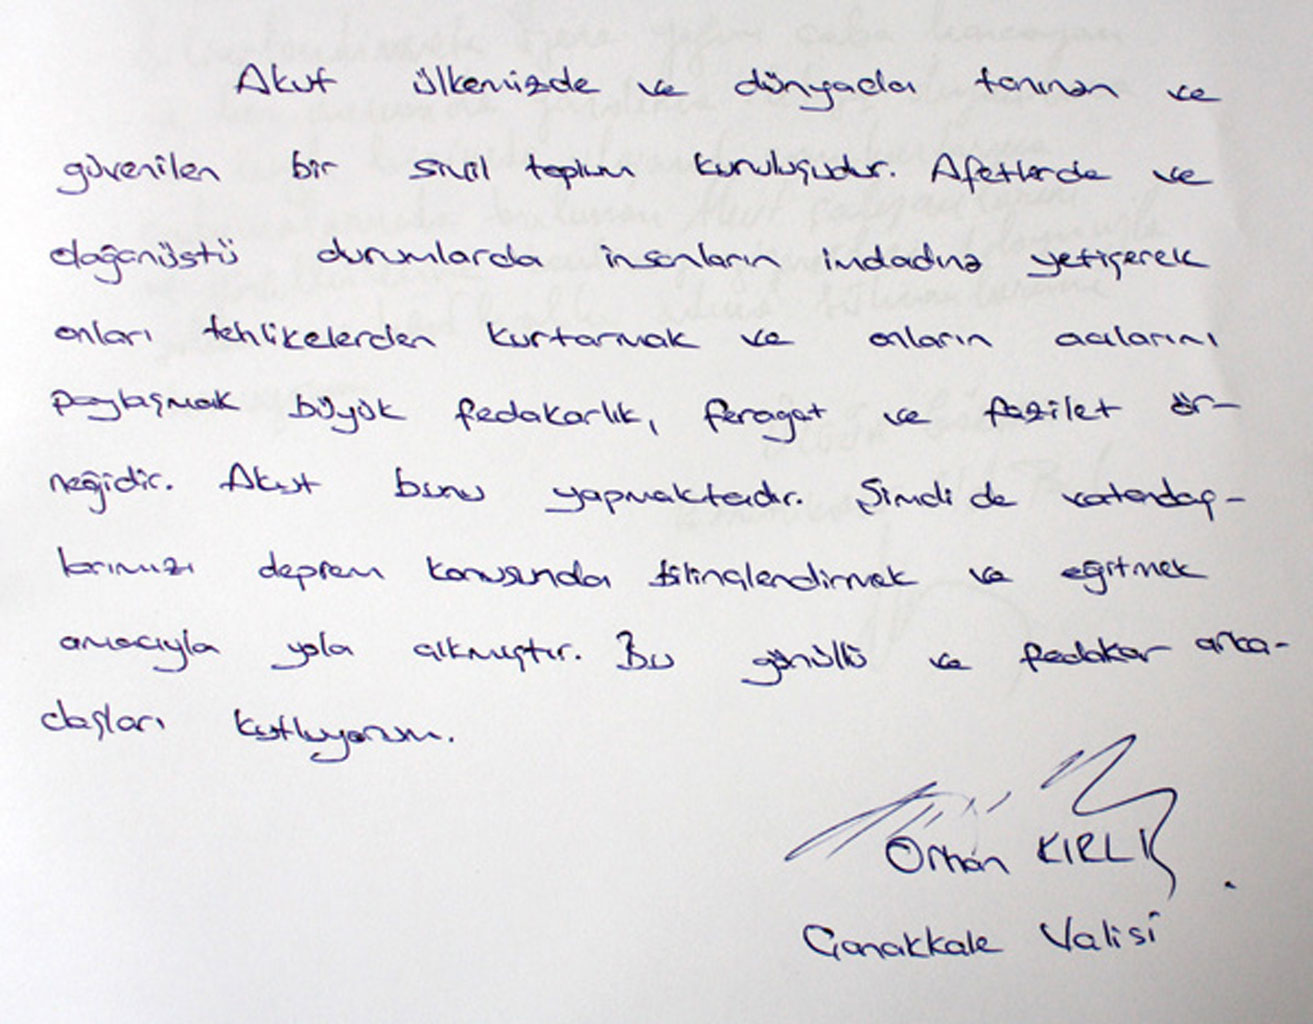 Akut ülkemizde ve dünyada tanınan ve
güvenilen bir sivil toplum kuruluşudur. Afetlerde ve
olağanüstü durumlarda insanların imdadına yetişerek
onları tehlikelerden kurtarmak ve onların acılarını
paylaşmak büyük fedakarlık, feragat ve fazilet ör-
neğidir. Akut bunu yapmaktadır. Şimdi de vatandaş-
larımızı deprem konusunda bilinçlendirmek ve eğitmek
amacıyla yola çıkmıştır. Bu gönüllü ve fedakar arka-
daşları kutluyorum.
Orhan KIRLI
Çanakkale Valisi